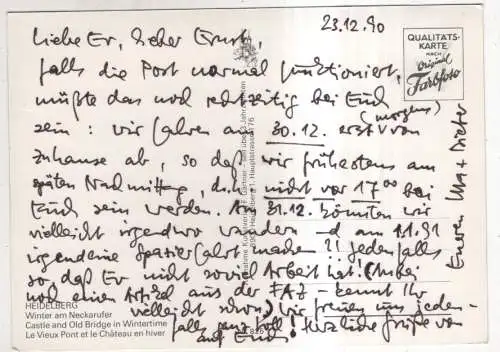 23.12.90
Liebe Ev, lieber Ernst,
falls die Post normal funktioniert,
müßte das noch rechtzeitig bei Euch
sein: wir fahren am 30.12. erst (morgens) von
Zuhause ab, so daß wir frühestens am
späten Nachmittag, d.h. nicht vor 17⁰⁰ bei
Euch sein werden. Am 31.12. könnten wir
vielleicht irgendwo wandern – am 1.1.91
irgendeine Spazierfahrt machen?! Jedenfalls
so daß Ev nicht soviel Arbeit hat! (Anbei
noch einen Artikel aus der FAZ – kennt Ihr
vielleicht schon) wir freuen uns jeden-
falls ganz toll! Herzliche Grüße von
auf Euch!
Dieter
QUALITÄTS-
KARTE
NACH
Original
Farbfoto
HEIDELBERG
Winter am Neckarufer
Castle and Old Bridge in Wintertime
Le Vieux Pont et le Château en hiver